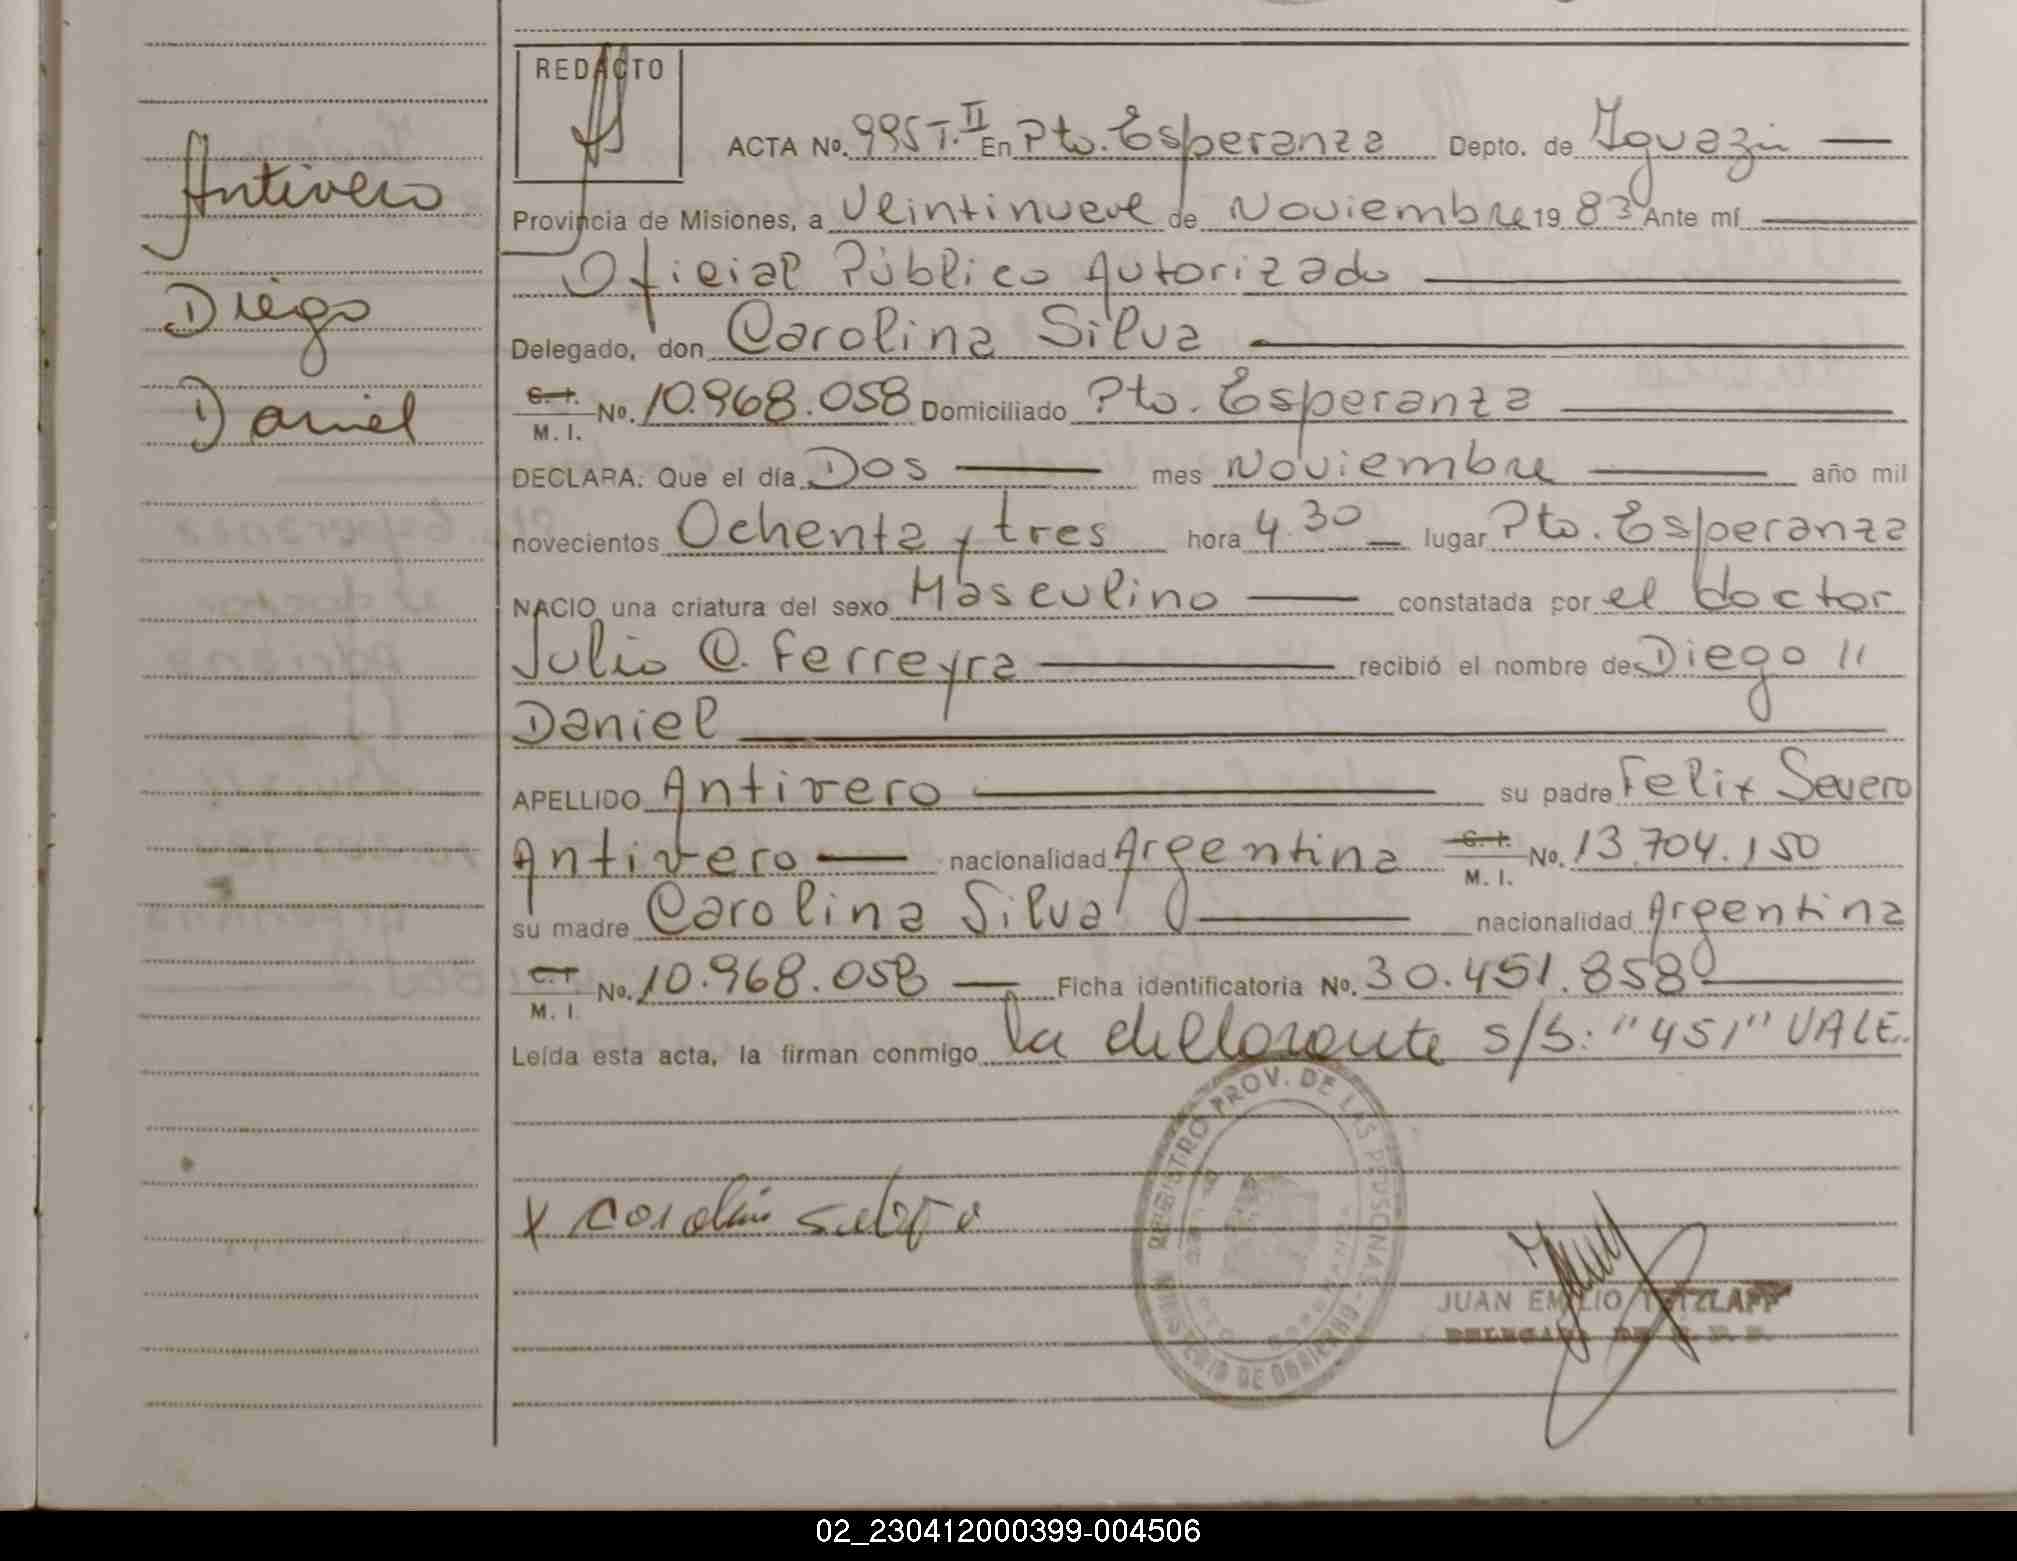 REDACTO
ACTA No. 995 T. II En Pto. Esperanza Depto. de Iguazú
Antivero
Provincia de Misiones, a Veintinueve de Noviembre 19 83 Ante mí
Oficial Público Autorizado
Diego
Delegado, don Carolina Silva
Daniel
C. I. M. I. No. 10.968.058 Domiciliado Pto. Esperanza
DECLARA: Que el día Dos mes Noviembre año mil
novecientos Ochenta y tres hora 4.30 lugar Pto. Esperanza
NACIO una criatura del sexo Masculino constatada por el doctor
Julio C. Ferreyra recibió el nombre de Diego //
Daniel
APELLIDO Antivero su padre Felix Severo
Antivero nacionalidad Argentina C. I. M. I. No. 13.704.150
su madre Carolina Silva nacionalidad Argentina
C. I. M. I. No. 10.968.058 Ficha identificatoria No. 30.451.858
Leída esta acta, la firman conmigo la declarante s/b: "451" VALE.
REGISTRO PROV. DE LAS PERSONAS - MINISTERIO DE GOBIERNO
JUAN EMILIO TETZLAFF
DELEGADO DE R. P. P.
02_230412000399-004506